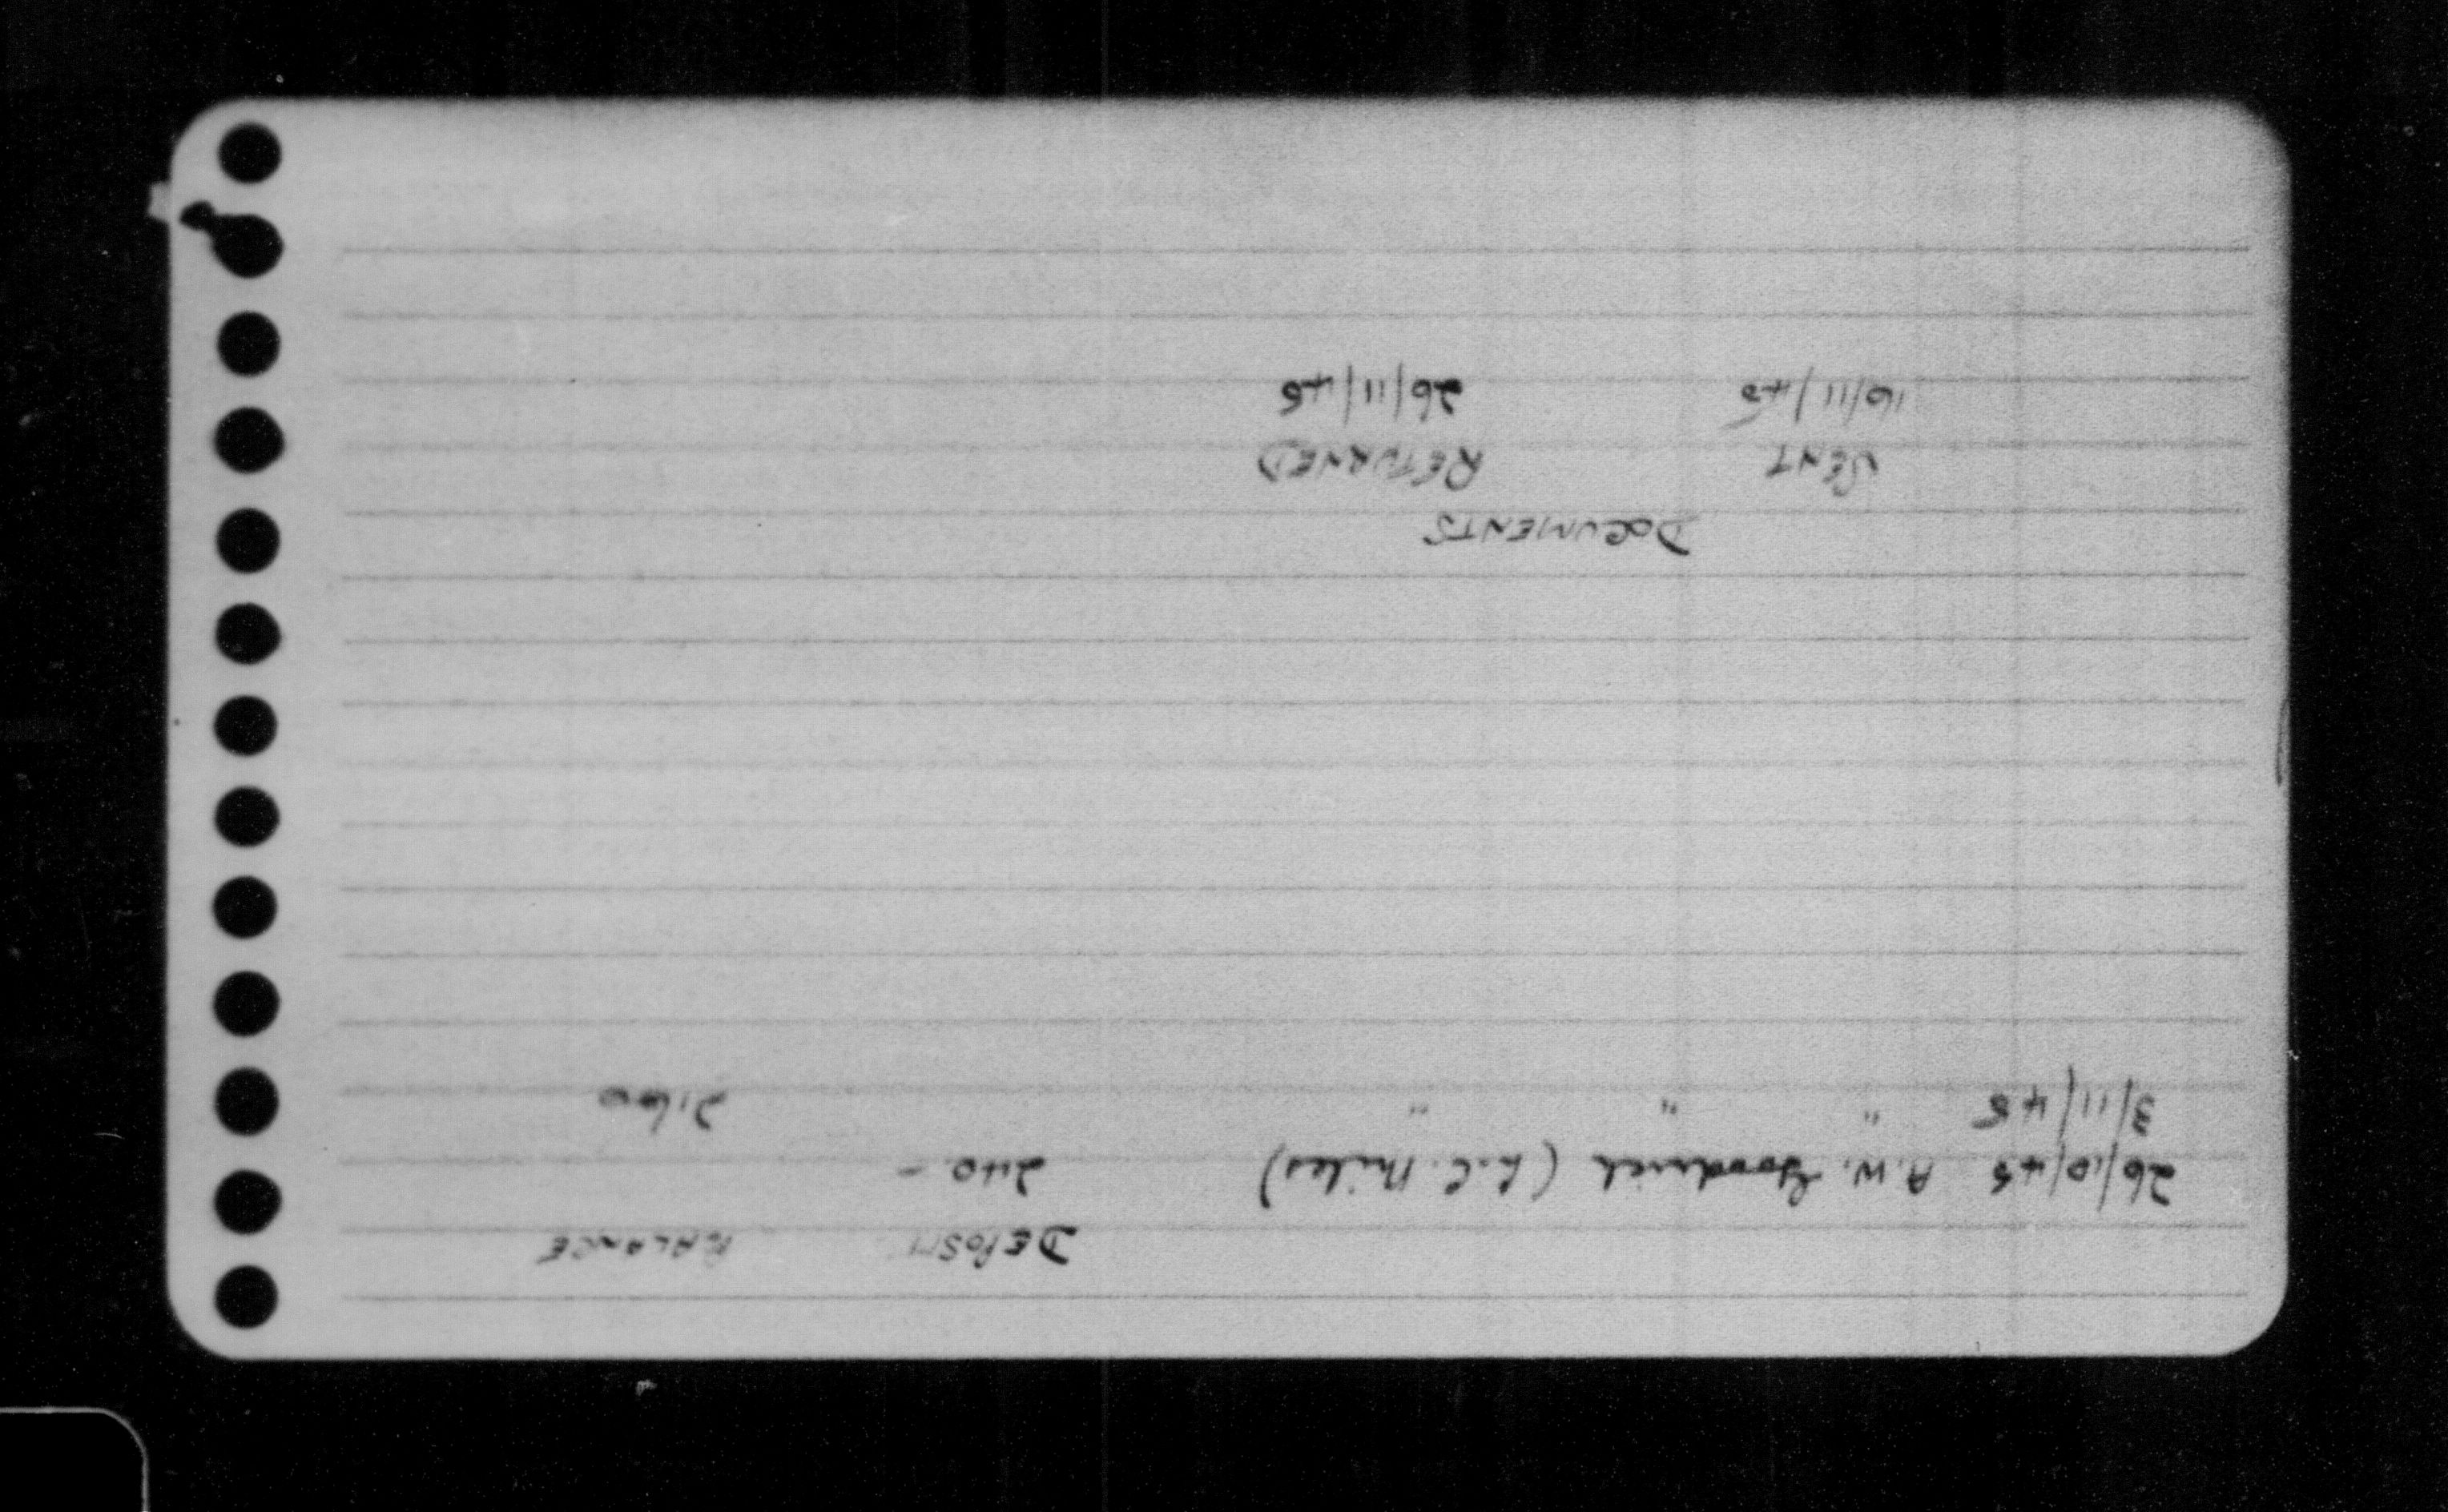 DEPOSIT BALANCE
26/10/45 A.W. Goodrich (L.C. Miles) 240 -
3/11/45 " " " 2,600
DOCUMENTS
SENT RETURNED
16/11/45 26/11/45